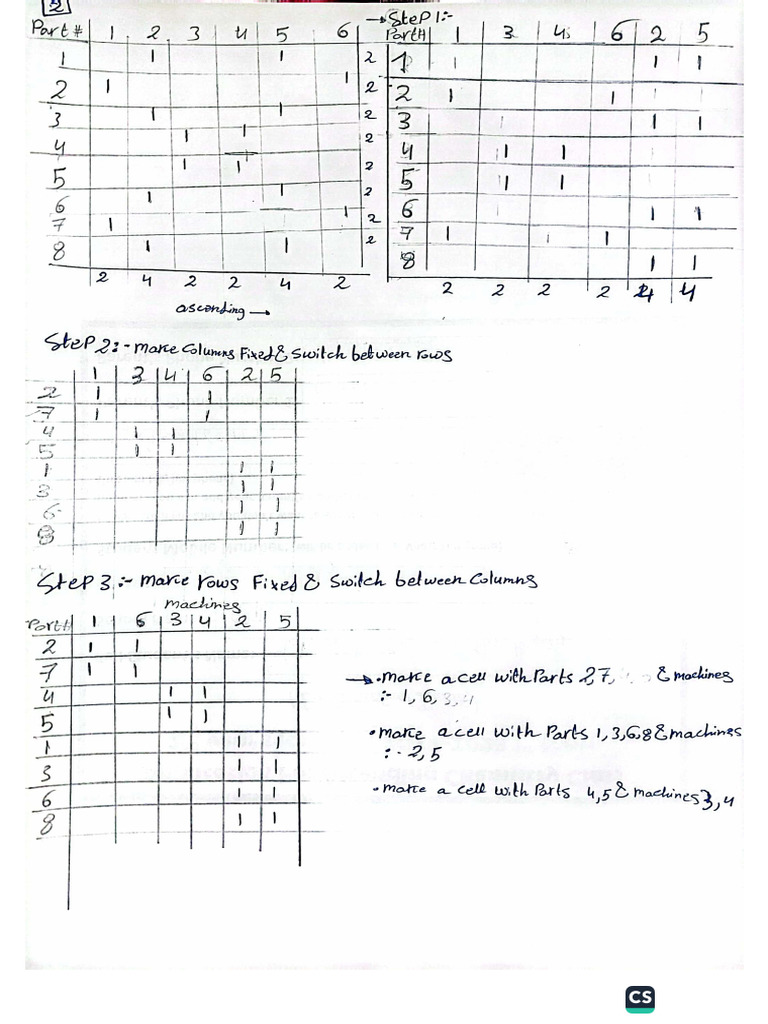 2
Part # 1 2 3 4 5 6
1 1 1 2
2 1 1 2
3 1 1 2
4 1 1 2
5 1 1 2
6 1 1 2
7 1 1 2
8 1 1 2
2 4 2 2 4 2
ascending →
→ SteP 1:-
Part# 1 3 4 6 2 5
1 1 1
2 1 1
3 1 1
4 1 1
5 1 1
6 1 1
7 1 1
8 1 1
2 2 2 2 4 4
SteP 2:- make Columns Fixed & Switch between rows
1 3 4 6 2 5
2 1 1
7 1 1
4 1 1
5 1 1
1 1 1
3 1 1
6 1 1
8 1 1
SteP 3:- make rows Fixed & Switch between Columns
machines
Part# 1 6 3 4 2 5
2 1 1
7 1 1
4 1 1
5 1 1
1 1 1
3 1 1
6 1 1
8 1 1
→ • make a cell with Parts 2,7, & machines
:- 1, 6, 3, 4
• make a cell with Parts 1,3,6,8 & machines
:- 2,5
• make a cell with Parts 4,5 & machines 3,4
CS